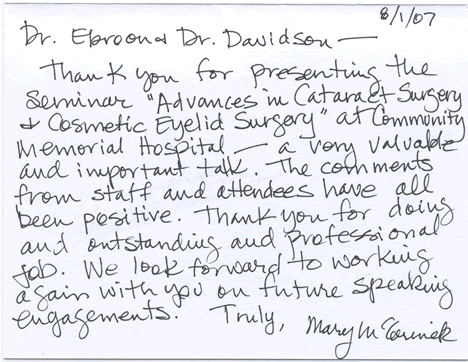 8/1/07
Dr. Ebroon & Dr. Davidson —
Thank you for presenting the
seminar "Advances in Cataract Surgery
& Cosmetic Eyelid Surgery" at Community
Memorial Hospital — a very valuable
and important talk. The comments
from staff and attendees have all
been positive. Thank you for doing
and outstanding and professional
job. We look forward to working
again with you on future speaking
engagements. Truly, Mary